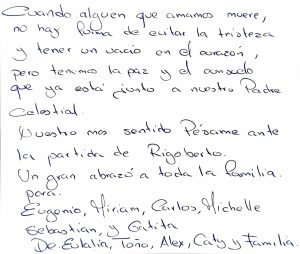 Cuando alguien que amamos muere,
no hay forma de evitar la tristeza
y tener un vacío en el corazón,
pero tenemos la paz y el consuelo
que ya está junto a nuestro Padre
Celestial.
Nuestro mas sentido Pésame ante
la partida de Rigoberto.
Un gran abrazó a toda la familia.
para:
Eugenio, Miriam, Carlos, Michelle
Sebastian, y Gatita
De. Eulalia, Toño, Alex, Caty y Familia.